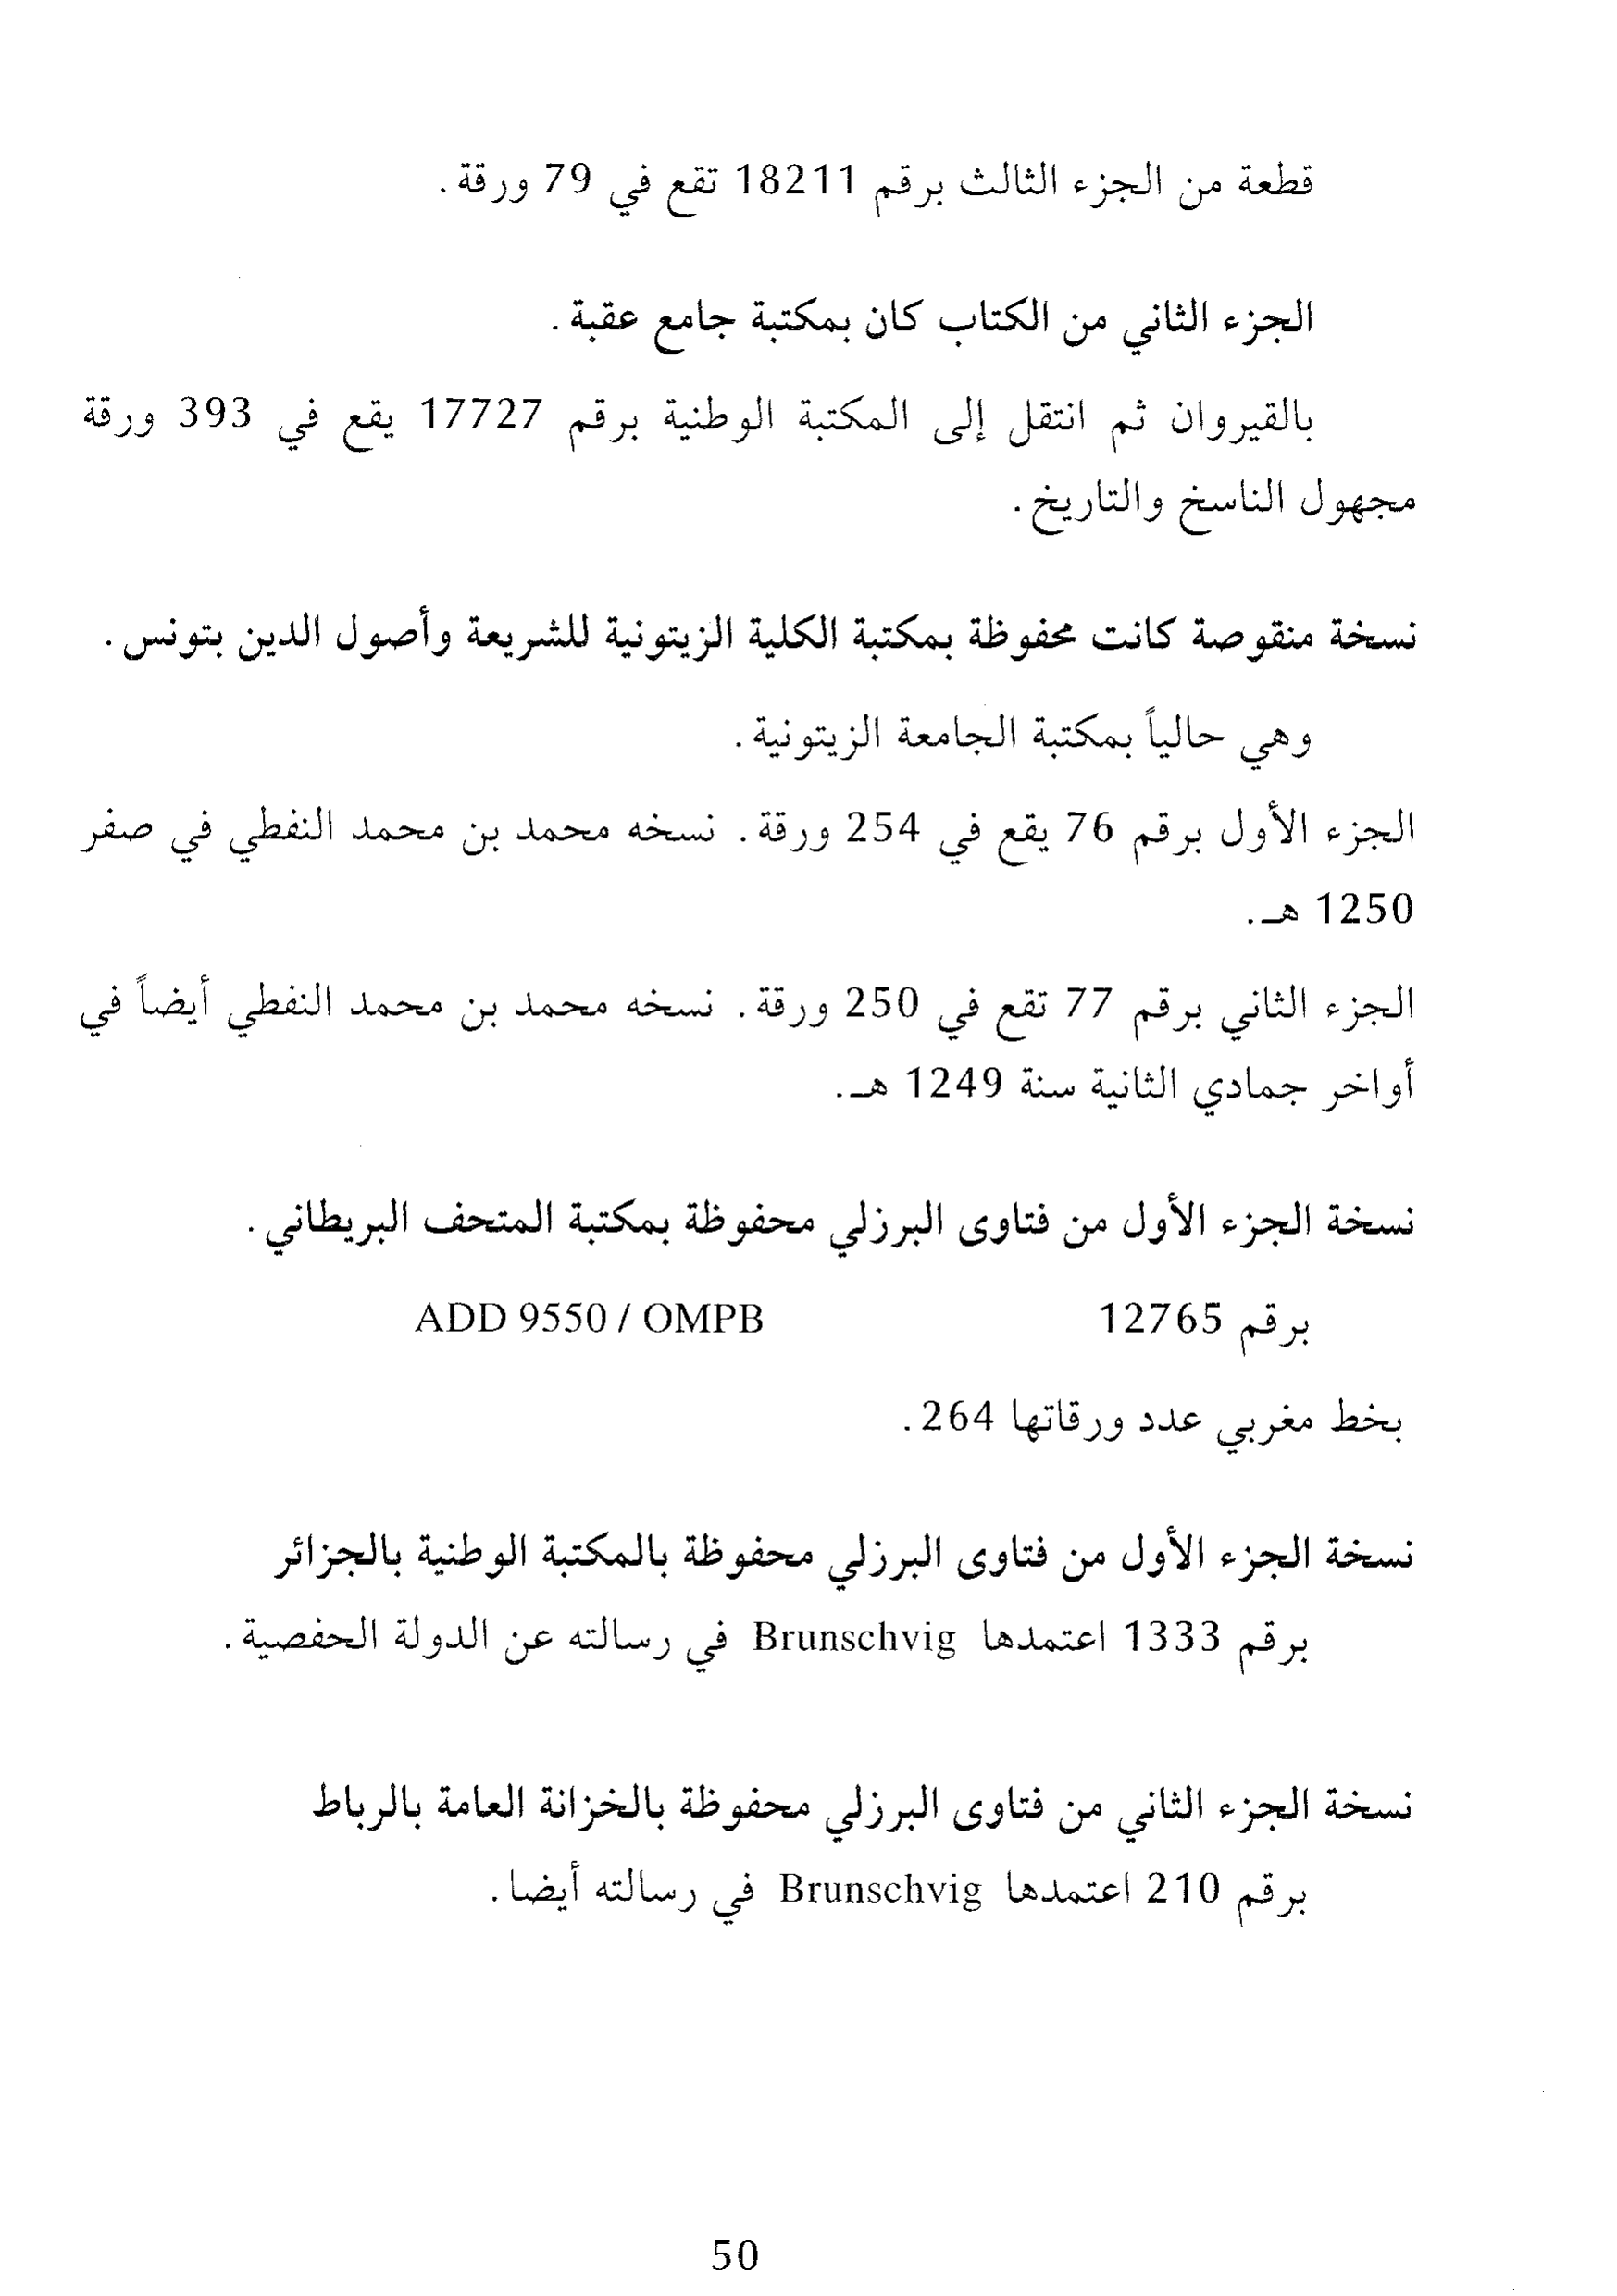 قطعة من الجزء الثالث برقم 18211 تقع في 79 ورقة.
الجزء الثاني من الكتاب كان بمكتبة جامع عقبة.
بالقيروان ثم انتقل إلى المكتبة الوطنية برقم 17727 يقع في 393 ورقة
مجهول الناسخ والتاريخ.
نسخة منقوصة كانت محفوظة بمكتبة الكلية الزيتونية للشريعة وأصول الدين بتونس.
وهي حالياً بمكتبة الجامعة الزيتونية.
الجزء الأول برقم 76 يقع في 254 ورقة. نسخه محمد بن محمد النفطي في صفر
1250 هـ.
الجزء الثاني برقم 77 تقع في 250 ورقة. نسخه محمد بن محمد النفطي أيضاً في
أواخر جمادي الثانية سنة 1249 هـ.
نسخة الجزء الأول من فتاوى البرزلي محفوظة بمكتبة المتحف البريطاني.
برقم 12765 ADD 9550 / OMPB
بخط مغربي عدد ورقاتها 264.
نسخة الجزء الأول من فتاوى البرزلي محفوظة بالمكتبة الوطنية بالجزائر
برقم 1333 اعتمدها Brunschvig في رسالته عن الدولة الحفصية.
نسخة الجزء الثاني من فتاوى البرزلي محفوظة بالخزانة العامة بالرباط
برقم 210 اعتمدها Brunschvig في رسالته أيضا.
50